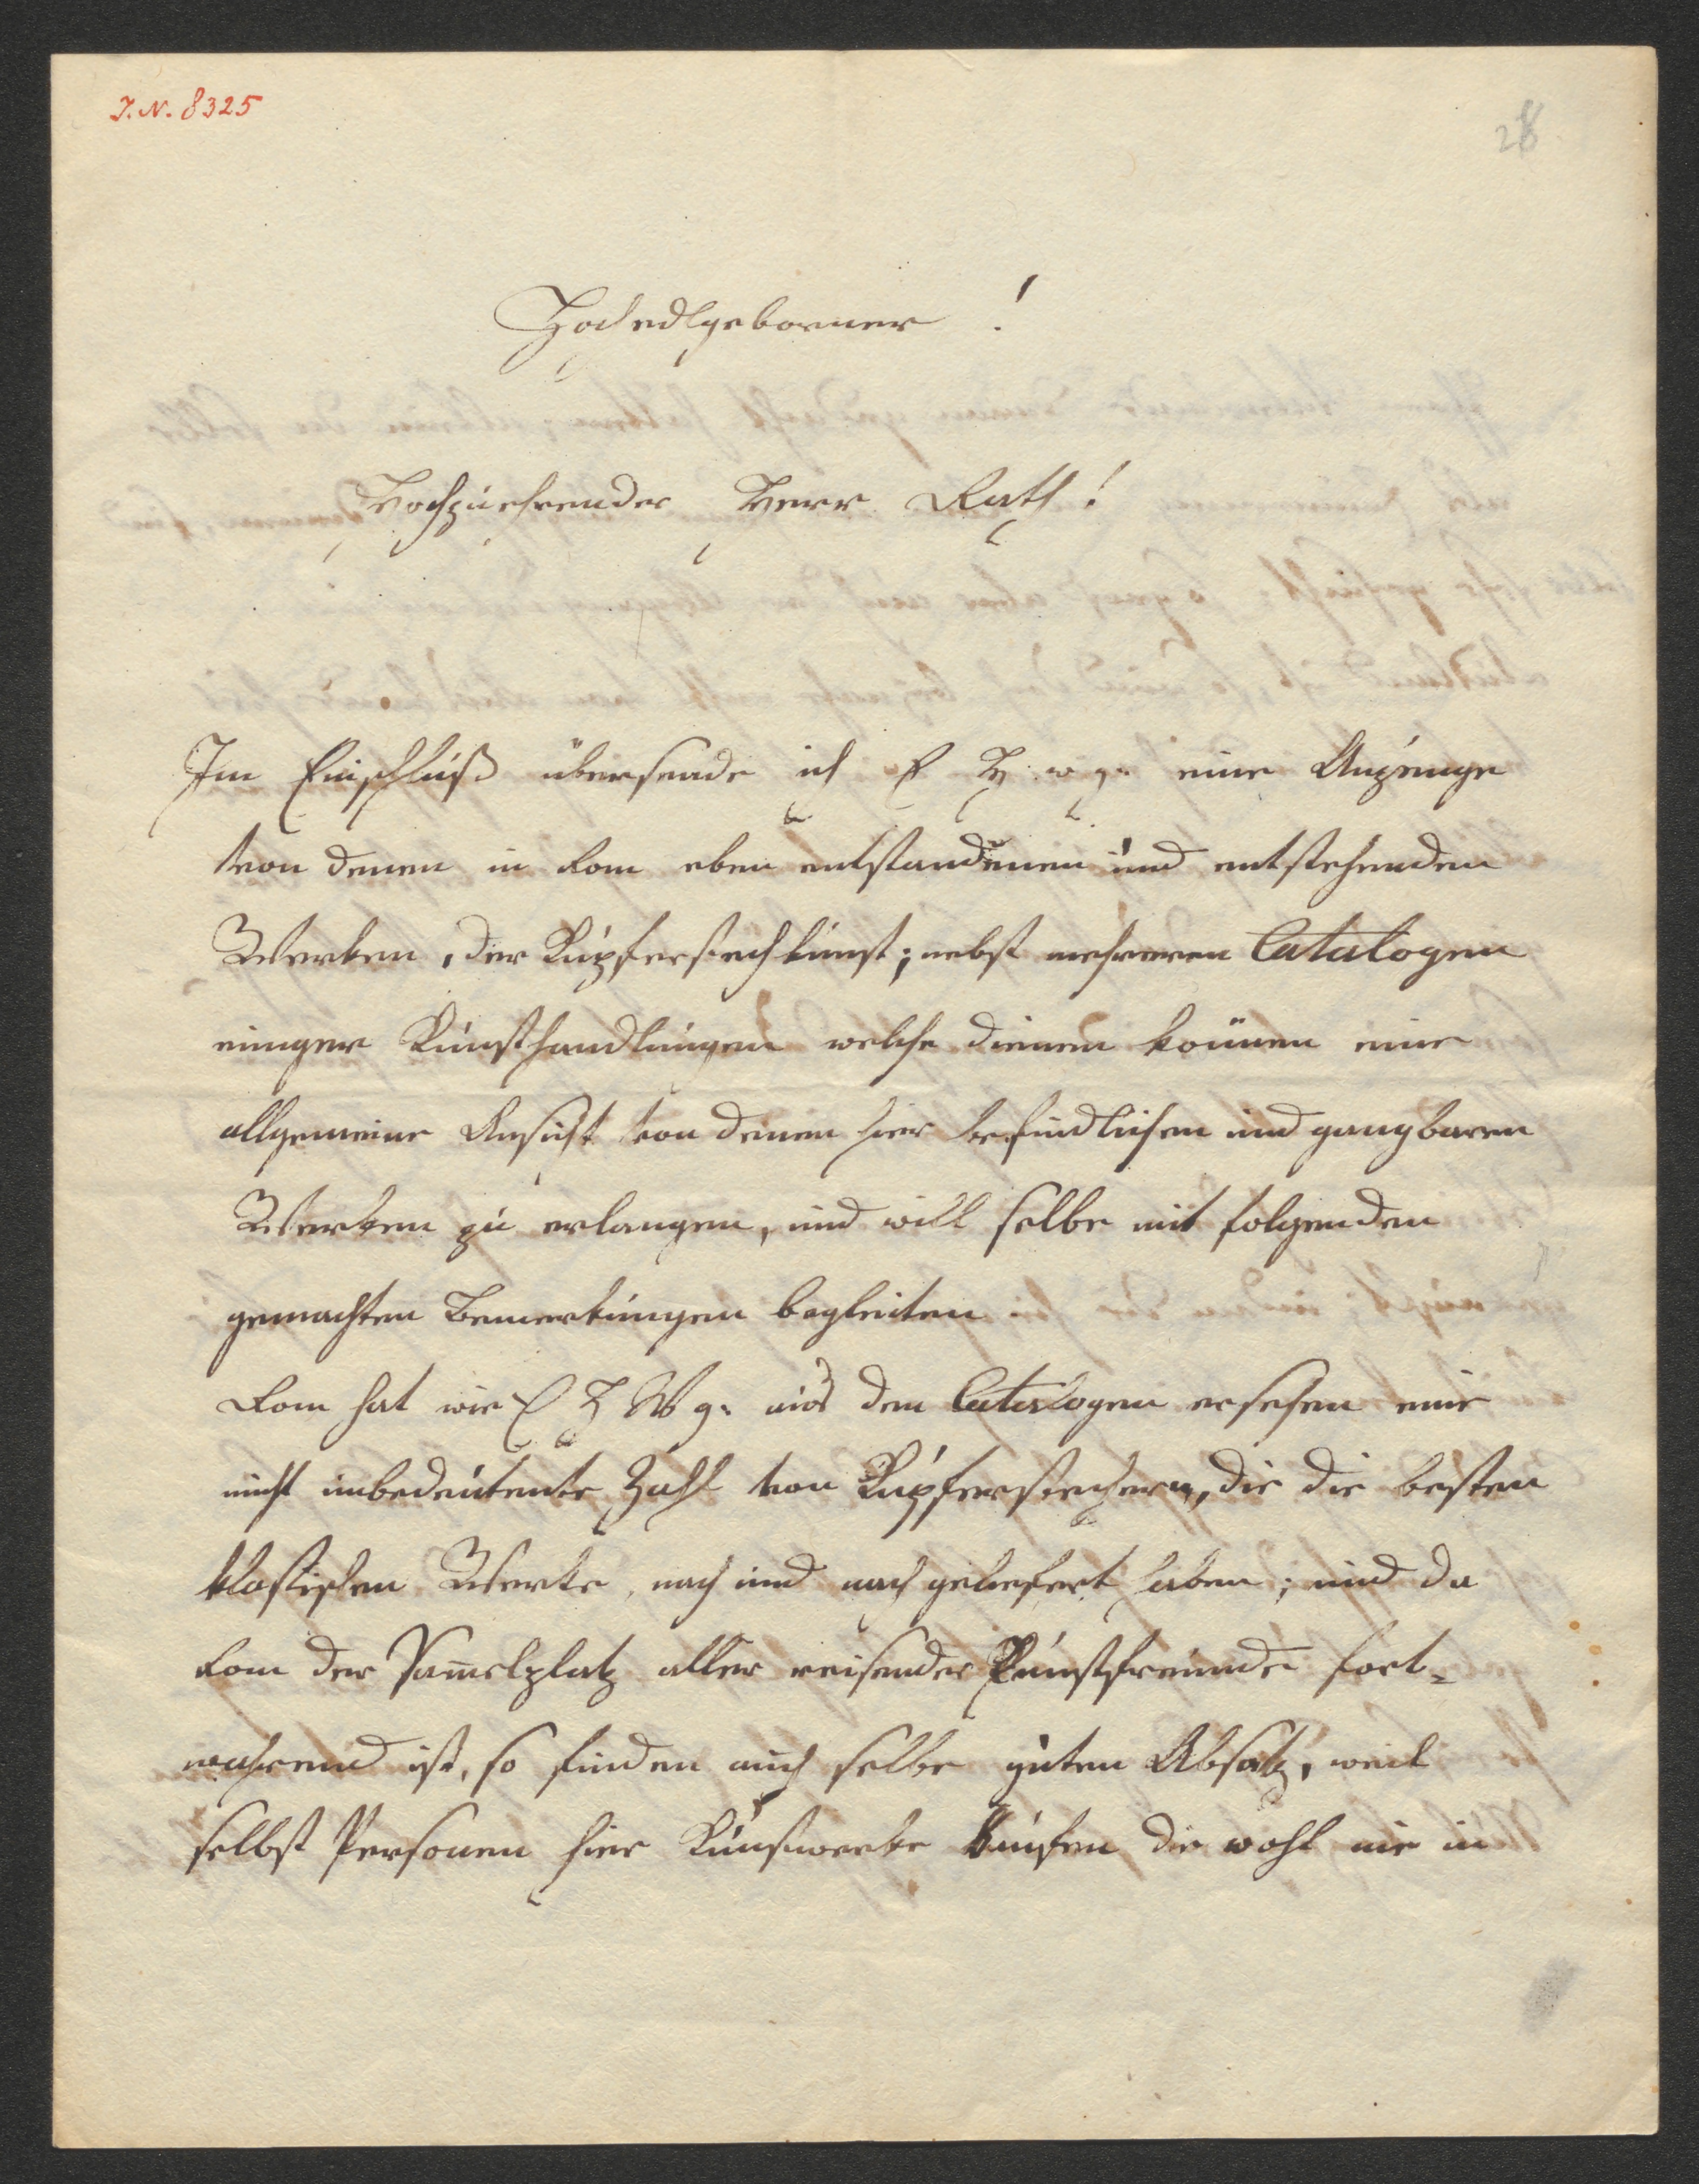 I. N. 8325
28
Hochedlgeborner !
Hochzuehrender Herr Rath !
Im Einschluß übersende ich E H. w g. eine Anzeuge
von denen in Rom eben entstandenen und entstehenden
Werken, der Kupferstechkunst; nebst mehreren Catalogen
einiger Kunsthandlungen welche dienen können eine
allgemeine Ansicht von denen hier befindlichen und gangbaren
Werken zu erlangen, und will selbe mit folgenden
gemachten Bemerkungen begleiten.
Rom hat wie E H W g. aus den Catalogen ersehen eine
nicht unbedeutente Zahl von Kupferstechern, die die besten
klassischen Werke, nach und nach geliefert haben; und da
Rom der Sam̄elplatz aller reisender Kunstfreunde fort-
wahrend ist, so finden auch selbe guten Absatz, weil
selbst Personen hier Kunstwerke kaufen die wohl nie in